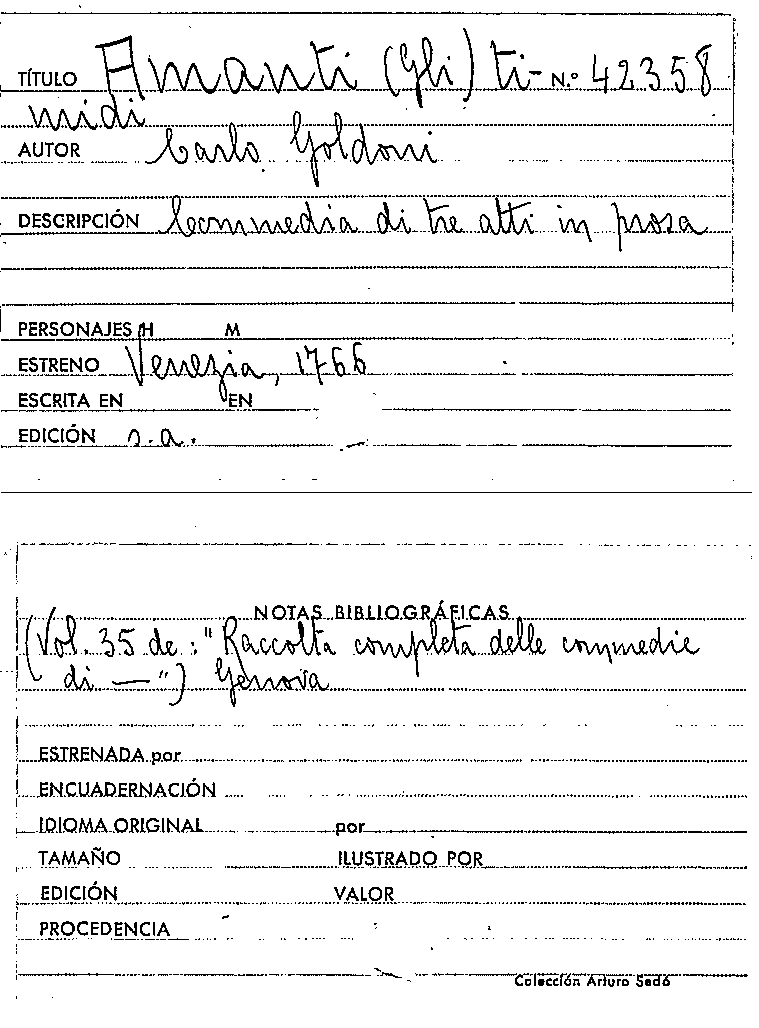 TÍTULO Amanti (Gli) ti- N.º 42358
midi
AUTOR Carlo Goldoni
DESCRIPCIÓN Commedia di tre atti in prosa
PERSONAJES H M
ESTRENO Venezia, 1766
ESCRITA EN EN
EDICIÓN s.a.
NOTAS BIBLIOGRÁFICAS
(Vol. 35 de : "Raccolta completa delle commedie
di — ") Genova
ESTRENADA por
ENCUADERNACIÓN
IDIOMA ORIGINAL por
TAMAÑO ILUSTRADO POR
EDICIÓN VALOR
PROCEDENCIA
Colección Arturo Sedó